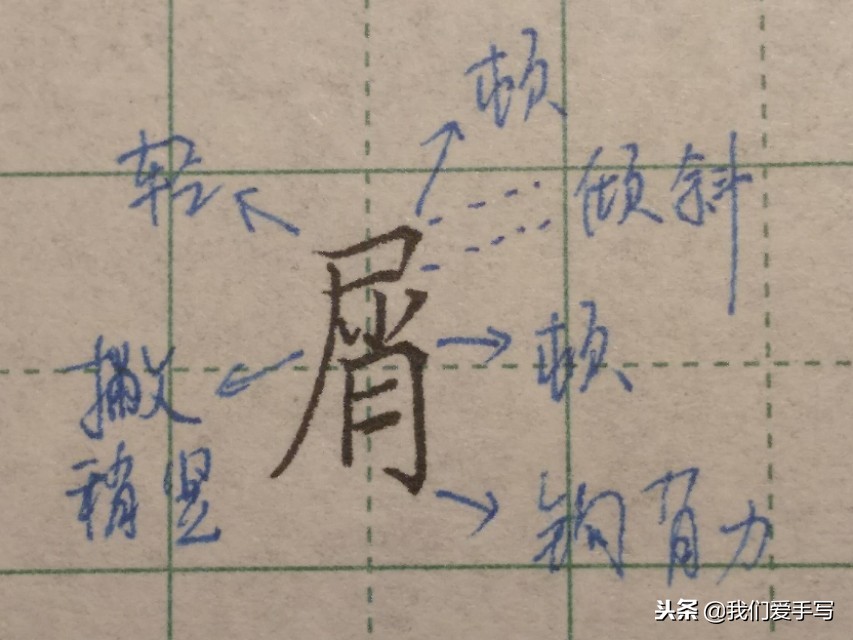 顿
轻
倾斜
屑
顿
撇
稍竖
钩有力
头条 @我们爱手写